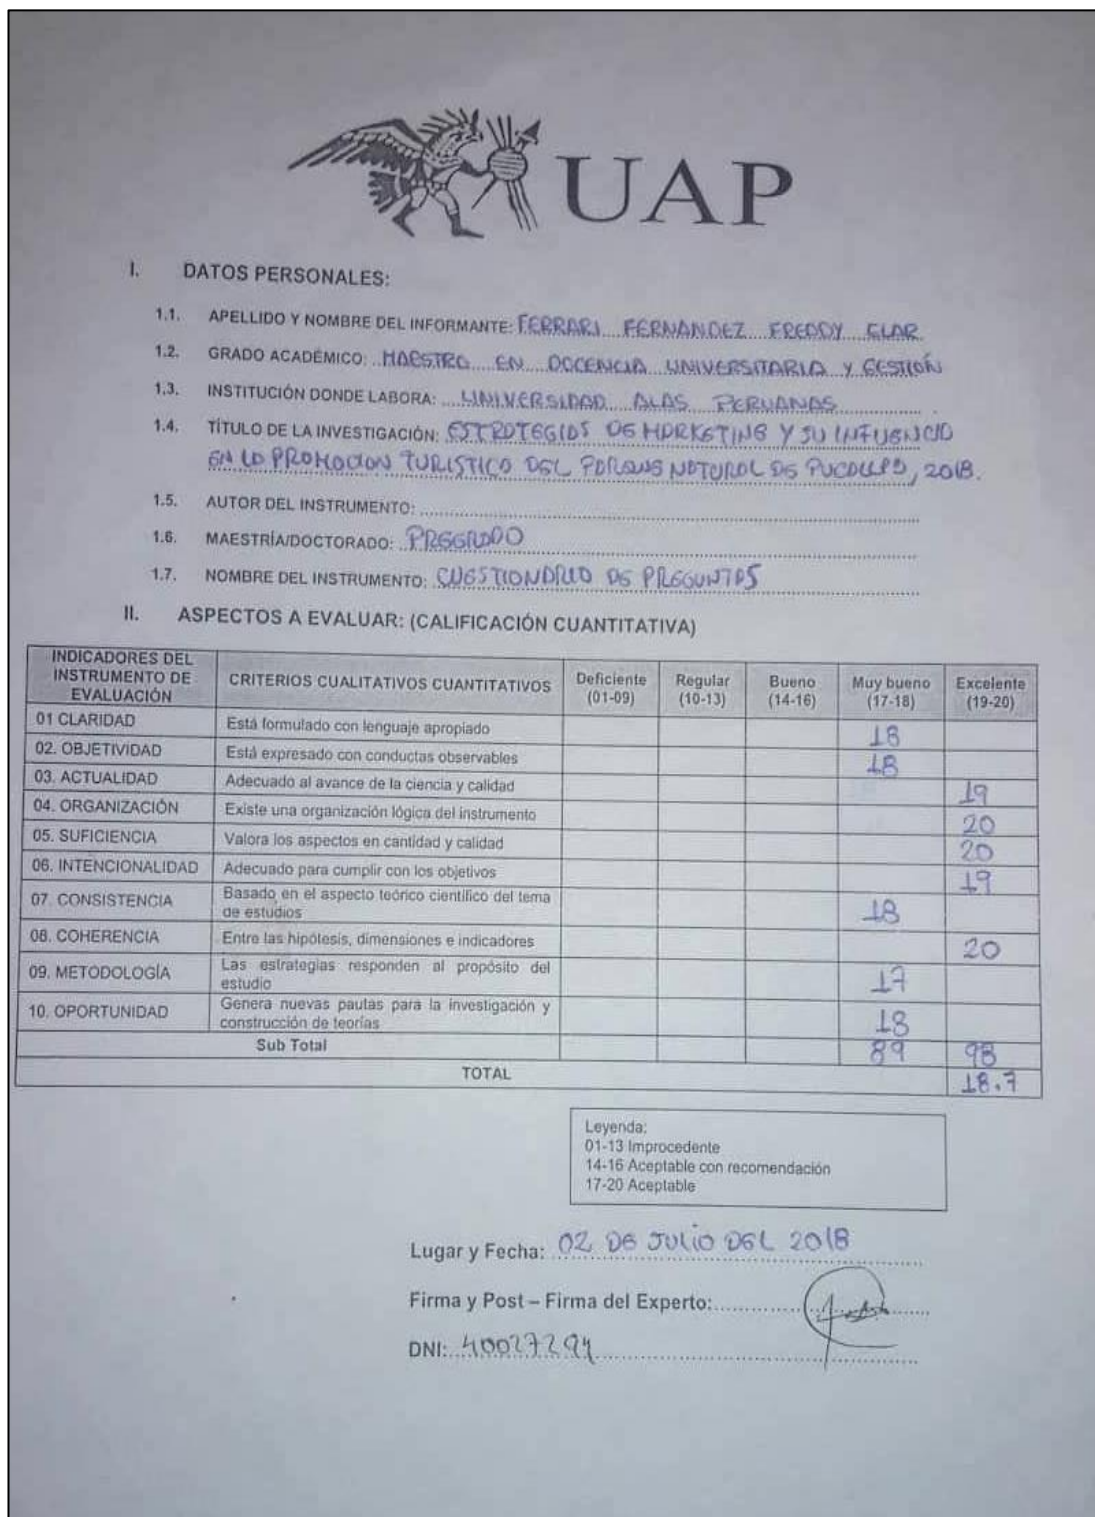 UAP
I. DATOS PERSONALES:
1.1. APELLIDO Y NOMBRE DEL INFORMANTE: FERRARI FERNANDEZ FREDDY ELAR
1.2. GRADO ACADÉMICO: MAESTRO EN DOCENCIA UNIVERSITARIA Y GESTIÓN
1.3. INSTITUCIÓN DONDE LABORA: UNIVERSIDAD ALAS PERUANAS
1.4. TÍTULO DE LA INVESTIGACIÓN: ESTRATEGIAS DE MARKETING Y SU INFUENCIA
EN LA PROMOCION TURISTICA DEL PARQUE NATURAL DE PUCALLPA, 2018.
1.5. AUTOR DEL INSTRUMENTO:
1.6. MAESTRÍA/DOCTORADO: PREGRADO
1.7. NOMBRE DEL INSTRUMENTO: CUESTIONARIO DE PREGUNTAS
II. ASPECTOS A EVALUAR: (CALIFICACIÓN CUANTITATIVA)
INDICADORES DEL INSTRUMENTO DE EVALUACIÓN CRITERIOS CUALITATIVOS CUANTITATIVOS Deficiente (01-09) Regular (10-13) Bueno (14-16) Muy bueno (17-18) Excelente (19-20)
01 CLARIDAD Está formulado con lenguaje apropiado 18
02. OBJETIVIDAD Está expresado con conductas observables 18
03. ACTUALIDAD Adecuado al avance de la ciencia y calidad 19
04. ORGANIZACIÓN Existe una organización lógica del instrumento 20
05. SUFICIENCIA Valora los aspectos en cantidad y calidad 20
06. INTENCIONALIDAD Adecuado para cumplir con los objetivos 19
07. CONSISTENCIA Basado en el aspecto teórico científico del tema de estudios 18
08. COHERENCIA Entre las hipótesis, dimensiones e indicadores 20
09. METODOLOGÍA Las estrategias responden al propósito del estudio 17
10. OPORTUNIDAD Genera nuevas pautas para la investigación y construcción de teorías 18
Sub Total 89 98
TOTAL 18.7
Leyenda:
01-13 Improcedente
14-16 Aceptable con recomendación
17-20 Aceptable
Lugar y Fecha: 02 DE JULIO DEL 2018
Firma y Post – Firma del Experto:
DNI: 40027294